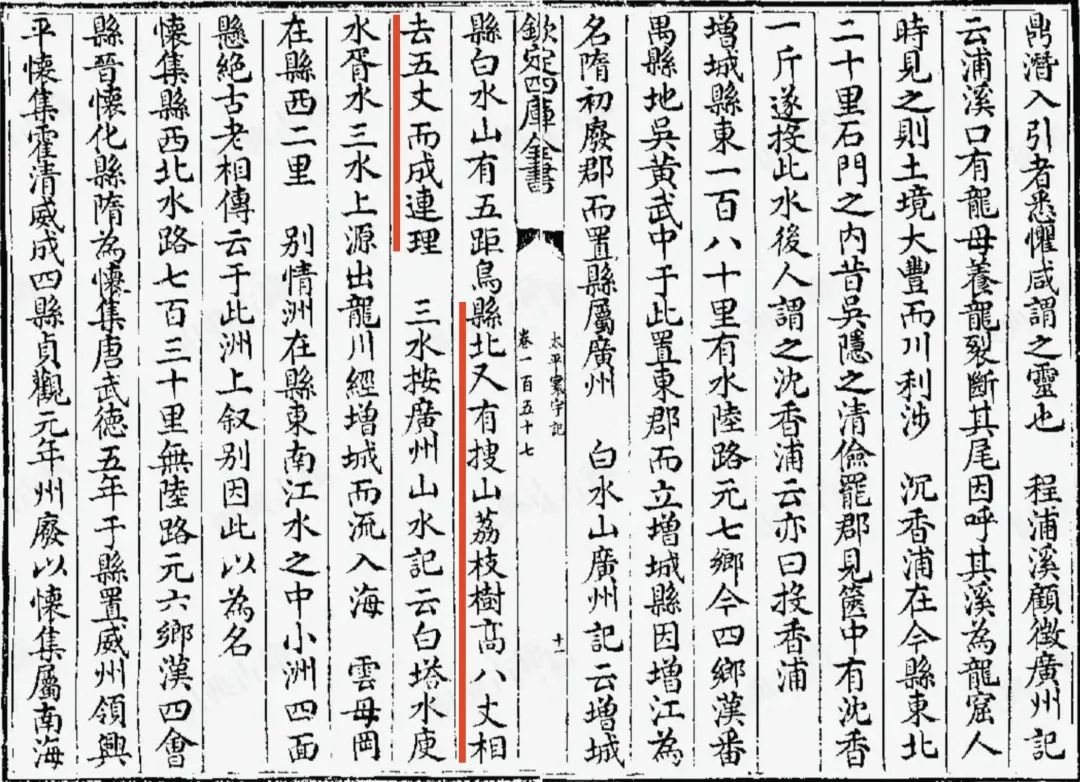 鼎潛入引者悉懼咸謂之靈也　程浦溪顧徵廣州記
云浦溪口有龍母養龍裂斷其尾因呼其溪為龍窟人
時見之則土境大豐而川利涉　沉香浦在今縣東北
二十里石門之内昔吳隱之清儉罷郡見篋中有沈香
一斤遂投此水後人謂之沈香浦云亦曰投香浦
增城縣東一百八十里有水陸路元七鄉今四鄉漢番
禺縣地吳黃武中于此置東郡而立增城縣因增江為
名隋初廢郡而置縣屬廣州　白水山廣州記云增城
欽定四庫全書
太平寰宇記
卷一百五十七
十一
縣白水山有五距鳥縣北又有搜山荔枝樹高八丈相
去五丈而成連理　三水按廣州山水記云白塔水庾
水胥水三水上源出龍川經增城而流入海　雲母岡
在縣西二里　别情洲在縣東南江水之中小洲四面
懸絶古老相傳云于此洲上叙别因此以為名
懷集縣西北水路七百三十里無陸路元六鄉漢四會
縣晉懷化縣隋為懷集唐武德五年于縣置威州領興
平懷集霍清威成四縣貞觀元年州廢以懷集屬南海